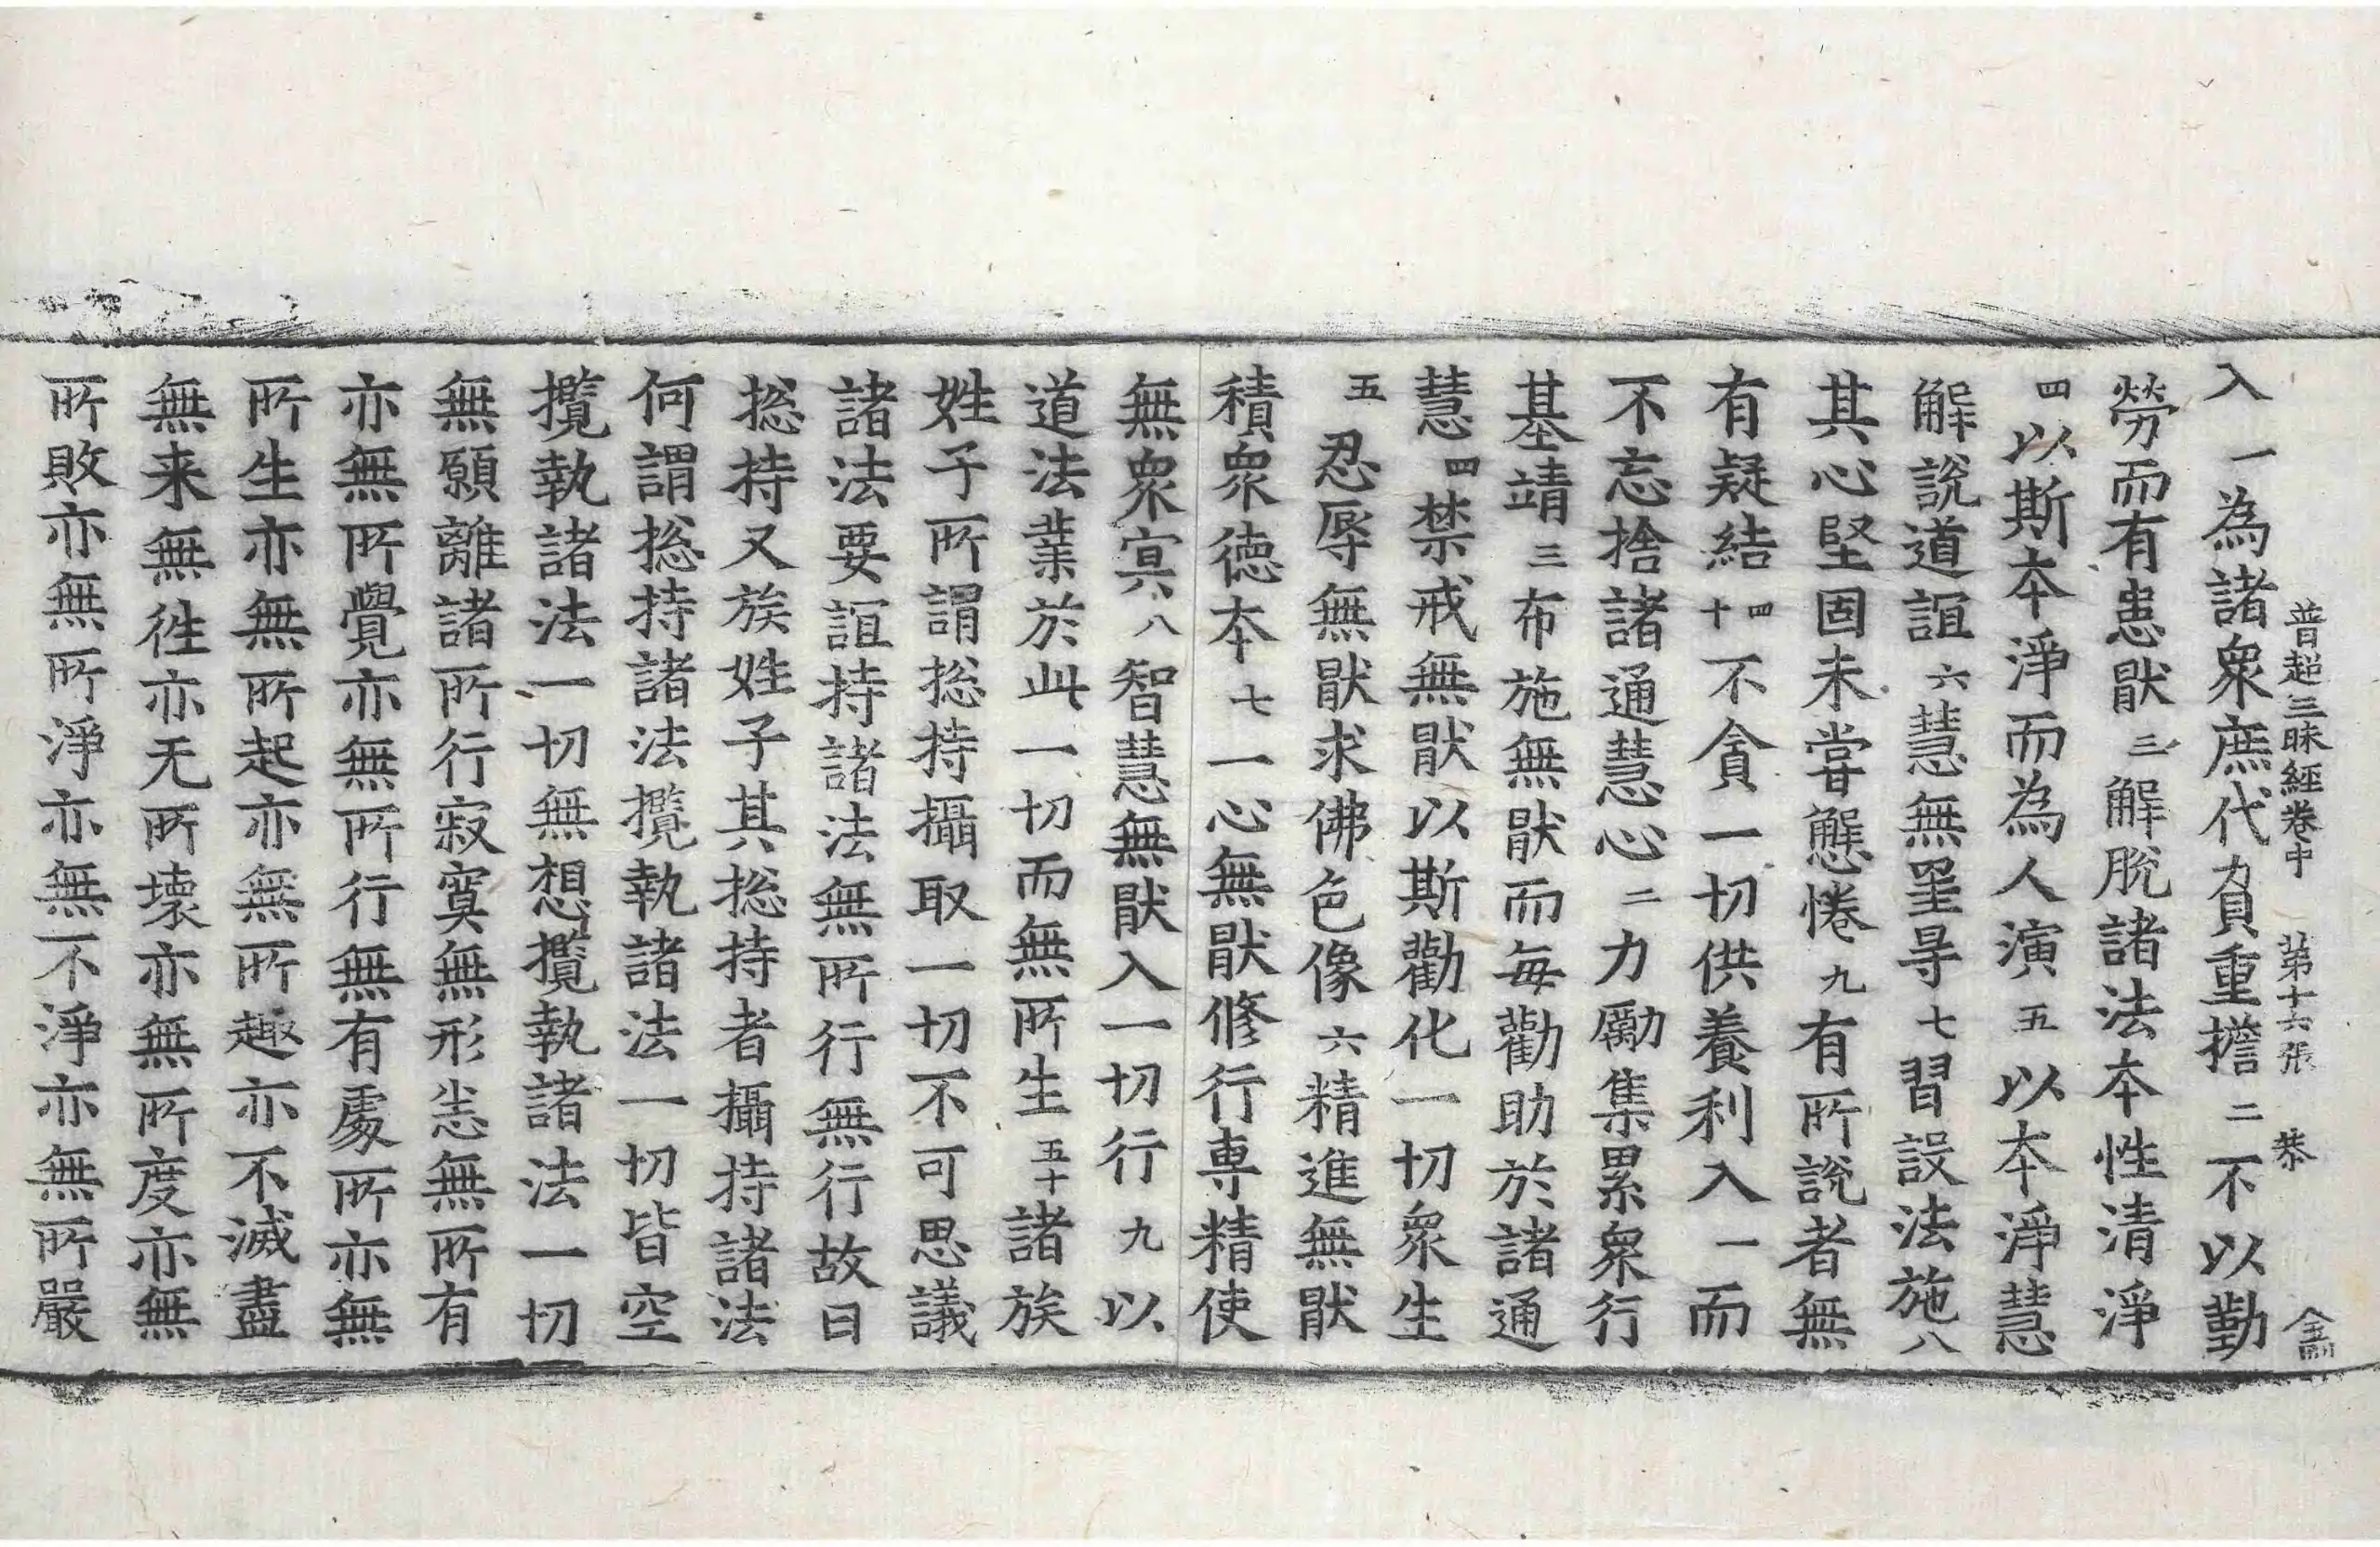 普超三昧經卷中 第十六張 恭
入一為諸衆庶代負重擔二不以勤
勞而有患猒三解脫諸法本性清淨
四以斯本淨而為人演五以本淨慧
解說道誼六慧無罣㝵七習設法施八
其心堅固未甞懈惓九有所說者無
有疑結四十不貪一切供養利入一而
不忘捨諸通慧心二力勵集累衆行
基靖三布施無猒而每勸助於諸通
慧四禁戒無猒以斯勸化一切衆生
五忍辱無猒求佛色像六精進無猒
積衆德本七一心無猒修行專精使
無衆㝠八智慧無猒入一切行九以
道法業於此一切而無所生五十諸族
姓子所謂揔持攝取一切不可思議
諸法要誼持諸法無所行無行故曰
揔持又族姓子其揔持者攝持諸法
何謂揔持諸法攬執諸法一切皆空
攬執諸法一切無想攬執諸法一切
無願離諸所行寂寞無形㤀無所有
亦無所覺亦無所行無有處所亦無
所生亦無所起亦無所趣亦不滅盡
無来無徃亦无所壞亦無所度亦無
所敗亦無所淨亦無不淨亦無所嚴